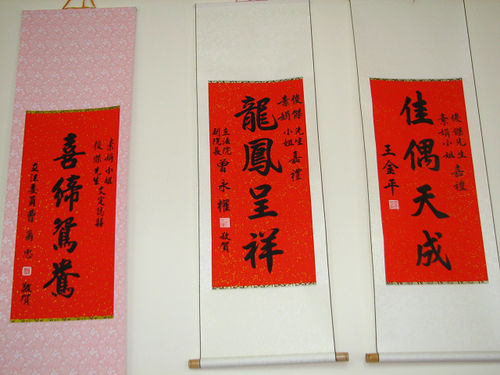 俊傑先生
素娟小姐
嘉禮
佳偶天成
王金平
俊傑先生
素娟小姐
嘉禮
龍鳳呈祥
立法院
副院長
曾永權
敬賀
素娟小姐
俊傑先生
文定誌禧
喜締鴛鴦
立法委員曹爾忠
敬賀